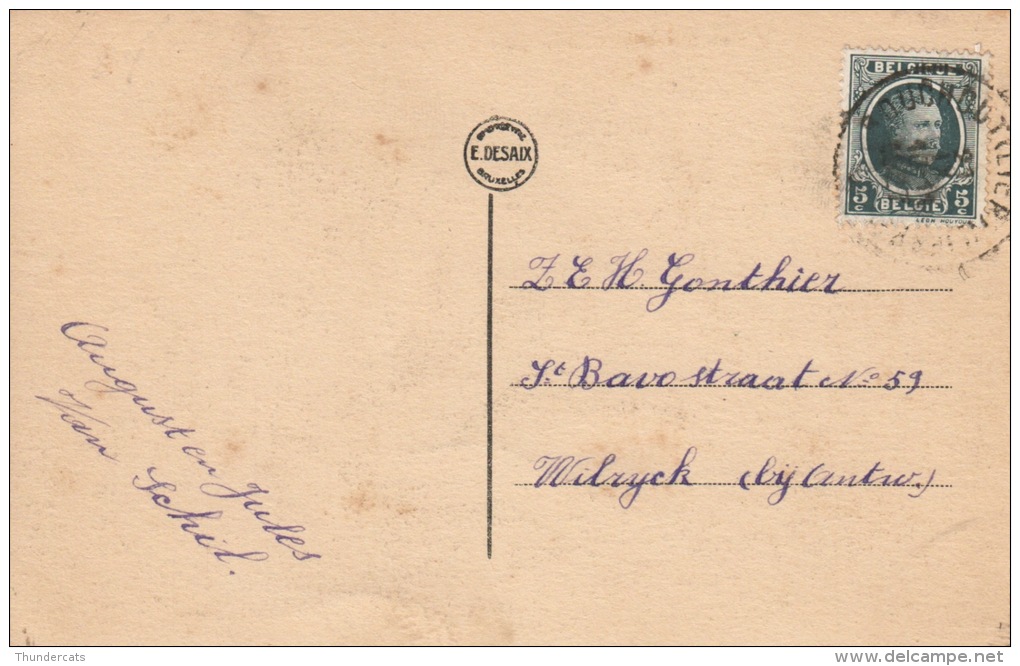 BELGIQUE
5c BELGIË 5c
E. DESAIX
BRUXELLES
Z E H. Gonthier
St Bavo straat No 59
Wilryck (bij Antw.)
August en Jules
Van Schil.
Thundercats
delcampe.net